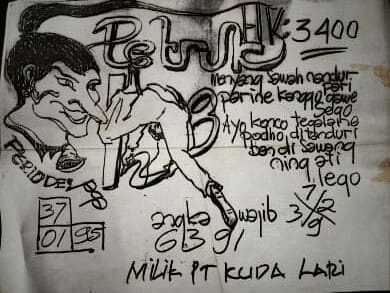 HK: 3400
nanyang sawah nandur
pari
parine kanggo gawe
sego
Ayo konco tegalane
podho ditanduri
ben di sawang
ning ati
lego
PERIODE:
37
01 95
angka wajib
6391
7/2
3/9
MILIK PT KUDA LARI